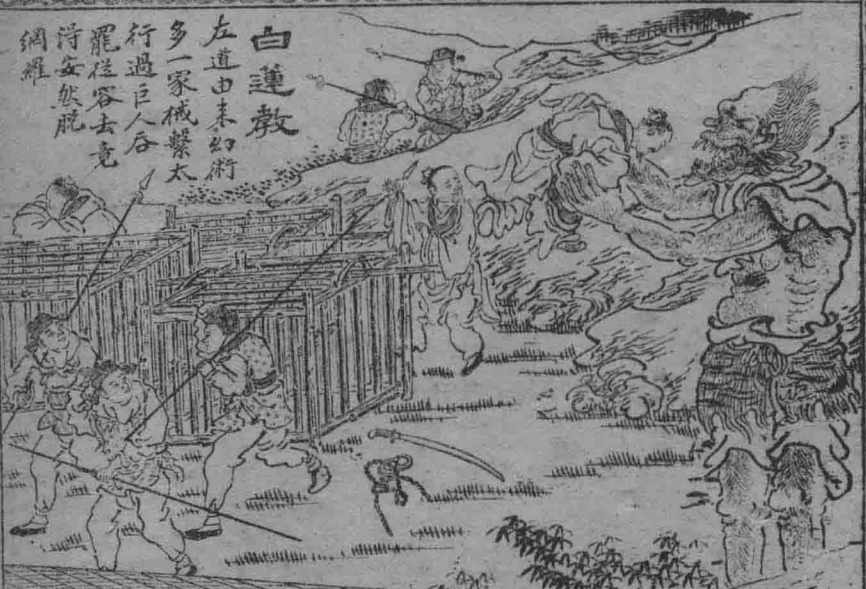 白蓮教
左道由来幻術
多一家械繫太
行過巨人吞
罷從容去竟
得安然脫
網羅